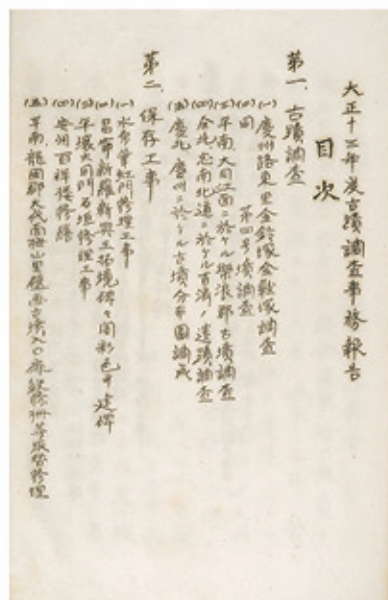 大正十三年度古蹟調査事務報告
目次
第一、古蹟調査
(一) 慶州路東里金鈴塚金製塚調査
(二) 同 第四号墳調査
(三) 平南大同江面ニ於ケル樂浪郡古墳調査
(四) 全北忠南北道ニ於ケル百済ノ遺蹟調査
(五) 慶北慶州ニ於ケル古墳分布図調成
第二、保存工事
(一) 水原華虹門修理工事
(二) 昌寧新羅眞興王拓境碑々閣彩色并建碑
(三) 平壤大同門石垣修理工事
(四) 安州百祥楼修繕
(五) 平南龍岡郡大代面梅山里壁画古墳入口扉鉄格柵等取替修理